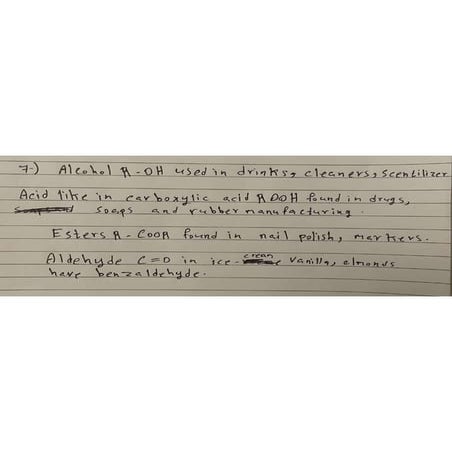 7-) Alcohol R-OH used in drinks, cleaners, scentilizer
Acid like in carboxylic acid ROOH found in drugs,
soaps and rubber manufacturing.
Esters R-COOR found in nail polish, markers.
Aldehyde C=O in ice-cream vanilla, elmonds
have benzaldehyde.